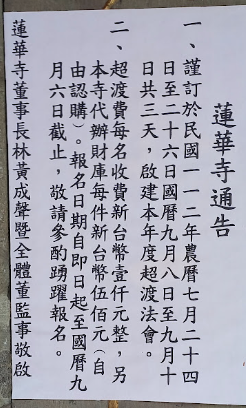 蓮華寺通告
一、謹訂於民國一一二年農曆七月二十四
日至二十六日國曆九月八日至九月十
日共三天，啟建本年度超渡法會。
二、超渡費每名收費新台幣壹仟元整，另
本寺代辦財庫每件新台幣伍佰元（自
由認購）。報名日期自即日起至國曆九
月六日截止，敬請參酌踴躍報名。
蓮華寺董事長林黃成聲暨全體董監事敬啟